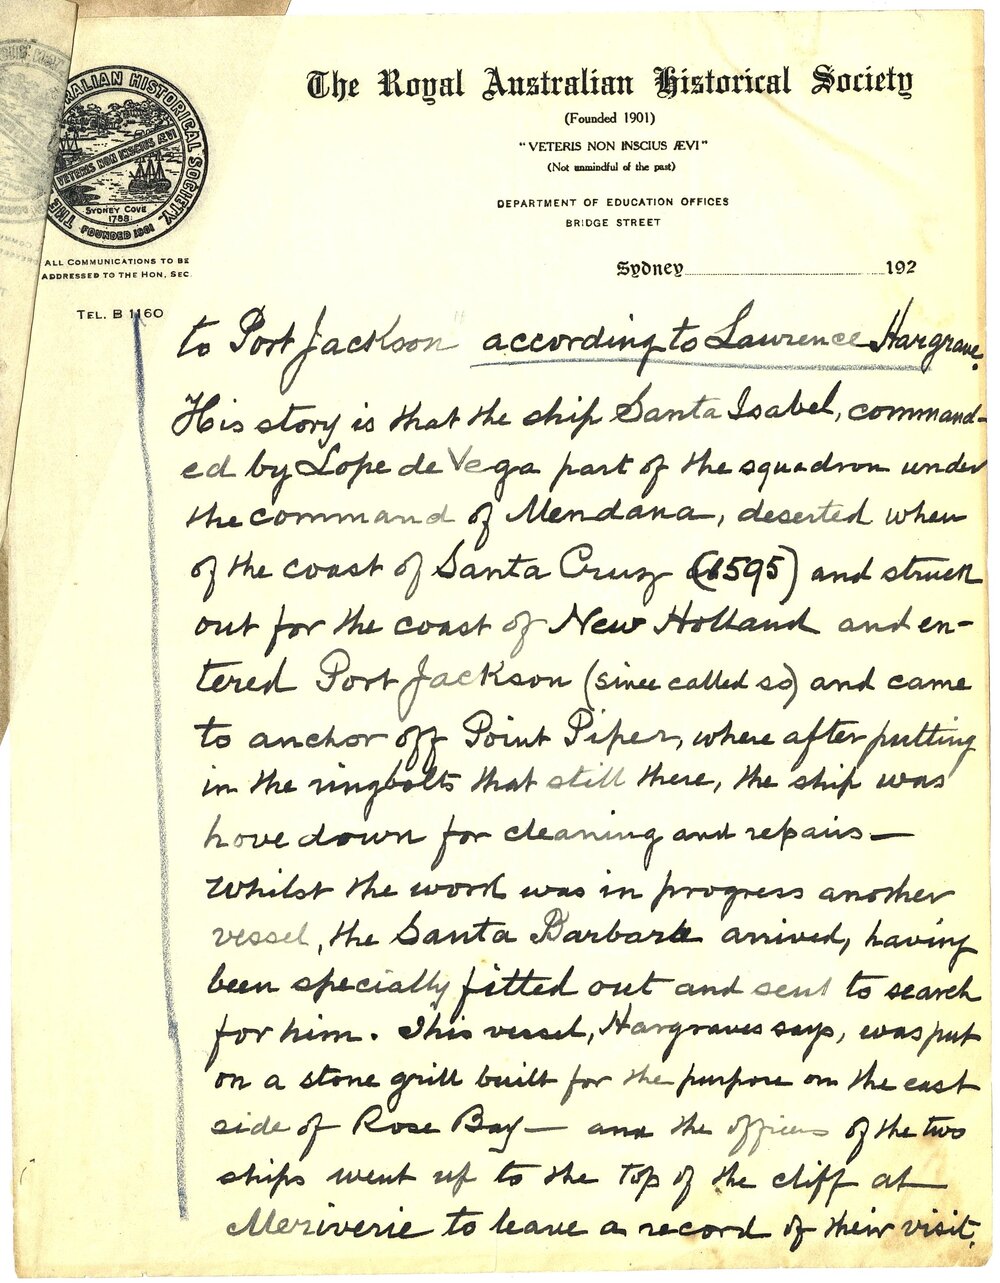 THE ROYAL AUSTRALIAN HISTORICAL SOCIETY.
VETERIS NON INSCIUS ÆVI
SYDNEY COVE
1788
FOUNDED 1901
ALL COMMUNICATIONS TO BE
ADDRESSED TO THE HON. SEC.
TEL. B 1160
The Royal Australian Historical Society
(Founded 1901)
"VETERIS NON INSCIUS ÆVI"
(Not unmindful of the past)
DEPARTMENT OF EDUCATION OFFICES
BRIDGE STREET
Sydney 192
to Port Jackson" according to Lawrence Hargrave.
His story is that the ship Santa Isabel, command-
ed by Lope de Vega part of the squadron under
the command of Mendana, deserted when
of the coast of Santa Cruz (1595) and struck
out for the coast of New Holland and en-
tered Port Jackson (since called so) and came
to anchor off Point Piper, where after putting
in the ringbolts that still there, the ship was
hove down for cleaning and repairs—
Whilst the work was in progress another
vessel, the Santa Barbara arrived, having
been specially fitted out and sent to search
for him. This vessel, Hargraves says, was put
on a stone grill built for the purpose on the east
side of Rose Bay— and the officers of the two
ships went up to the top of the cliff at
Meriverie to leave a record of their visit.